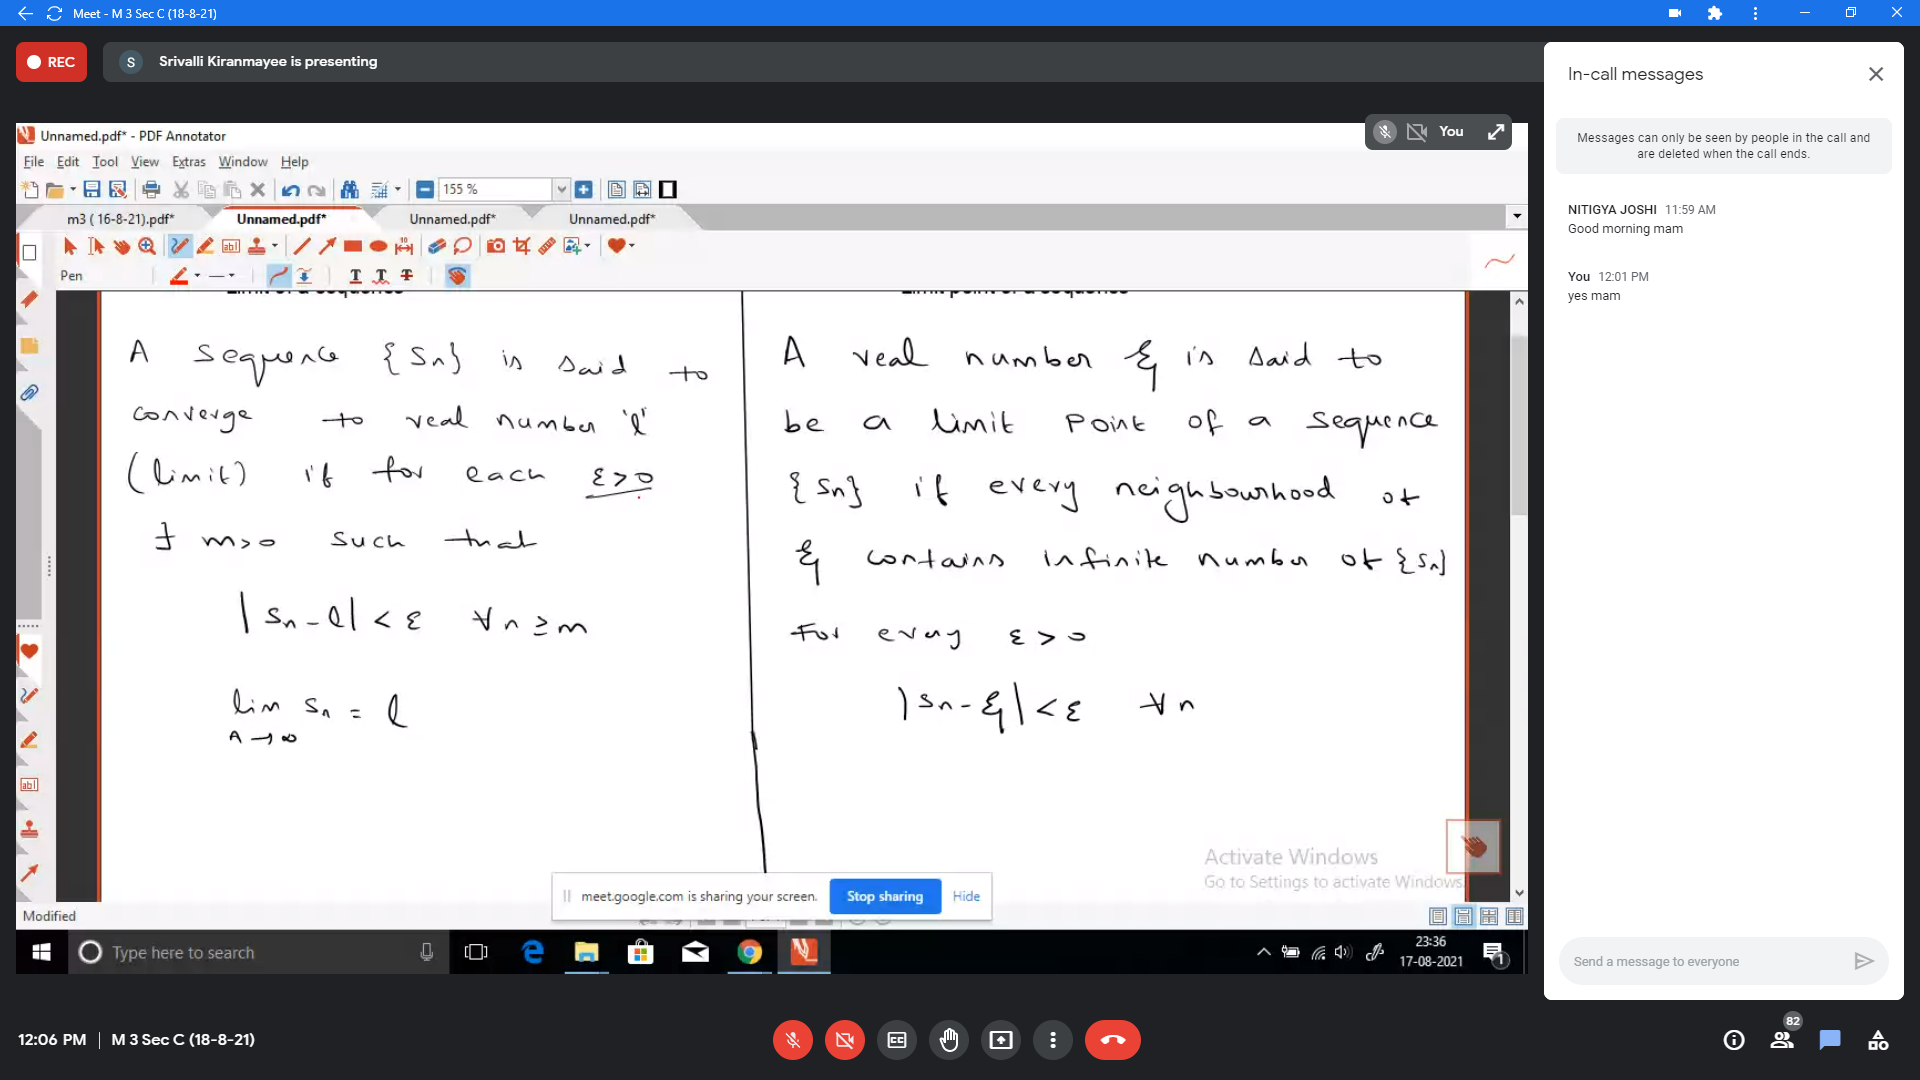 Meet - M 3 Sec C (18-8-21)
REC
S Srivalli Kiranmayee is presenting
Unnamed.pdf* - PDF Annotator
You
File Edit Tool View Extras Window Help
155 %
m3 ( 16-8-21).pdf* Unnamed.pdf* Unnamed.pdf* Unnamed.pdf*
Pen
Limit of a sequence
A sequence {Sn} is said to
converge to real number 'l'
(limit) if for each ε>0
∃ m>0 such that
|Sn - l| < ε ∀ n ≥ m
lim Sn = l
n → ∞
Limit point of a sequence
A real number ξ is said to
be a limit point of a sequence
{Sn} if every neighbourhood of
ξ contains infinite number of {Sn}
For every ε > 0
|Sn - ξ| < ε ∀ n
Activate Windows
Go to Settings to activate Windows.
meet.google.com is sharing your screen. Stop sharing Hide
Modified
Type here to search
23:36
17-08-2021
1
In-call messages
Messages can only be seen by people in the call and
are deleted when the call ends.
NITIGYA JOSHI 11:59 AM
Good morning mam
You 12:01 PM
yes mam
Send a message to everyone
12:06 PM | M 3 Sec C (18-8-21)
82